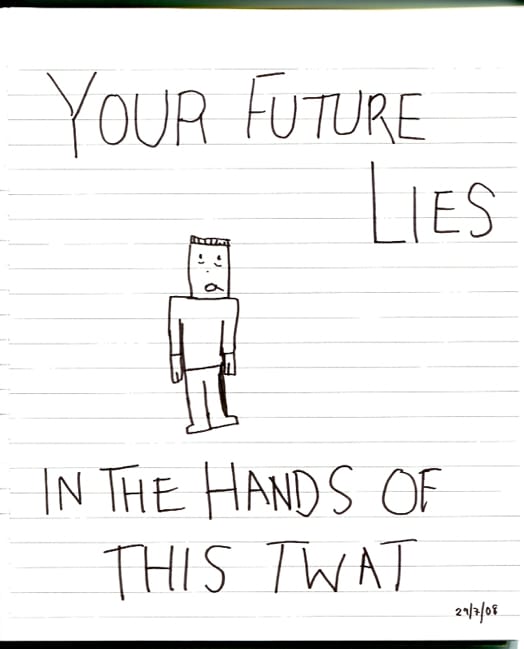 YOUR FUTURE
LIES
IN THE HANDS OF
THIS TWAT
29/7/08